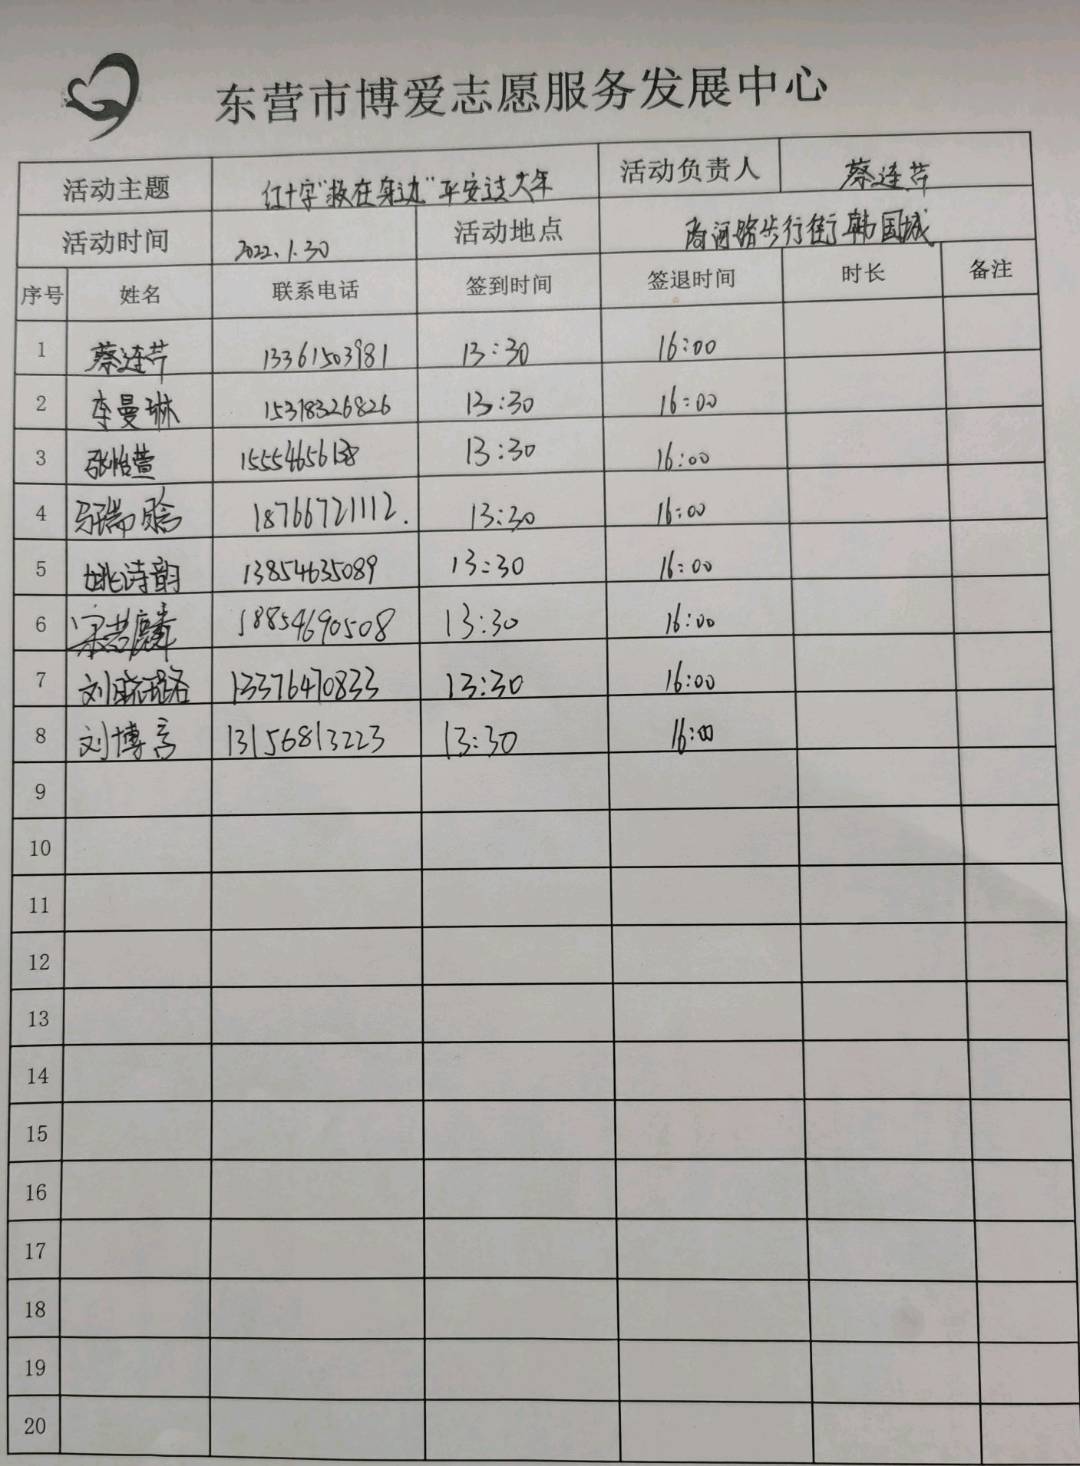 东营市博爱志愿服务发展中心
活动主题 红十字“救在身边”平安过大年 活动负责人 蔡连芹
活动时间 2022.1.30 活动地点 商河路步行街韩国城
序号 姓名 联系电话 签到时间 签退时间 时长 备注
1 蔡连芹 13361503981 13:30 16:00
2 李曼琳 15318326826 13:30 16:00
3 张怡萱 13:30 16:00
4 马瑞晗 18766721112. 13:30 16:00
5 姚诗韵 13854635089 13:30 16:00
6 宋若麟 18854690508 13:30 16:00
7 刘晓璐 13376470833 13:30 16:00
8 刘博言 13156813223 13:30 16:00
9
10
11
12
13
14
15
16
17
18
19
20